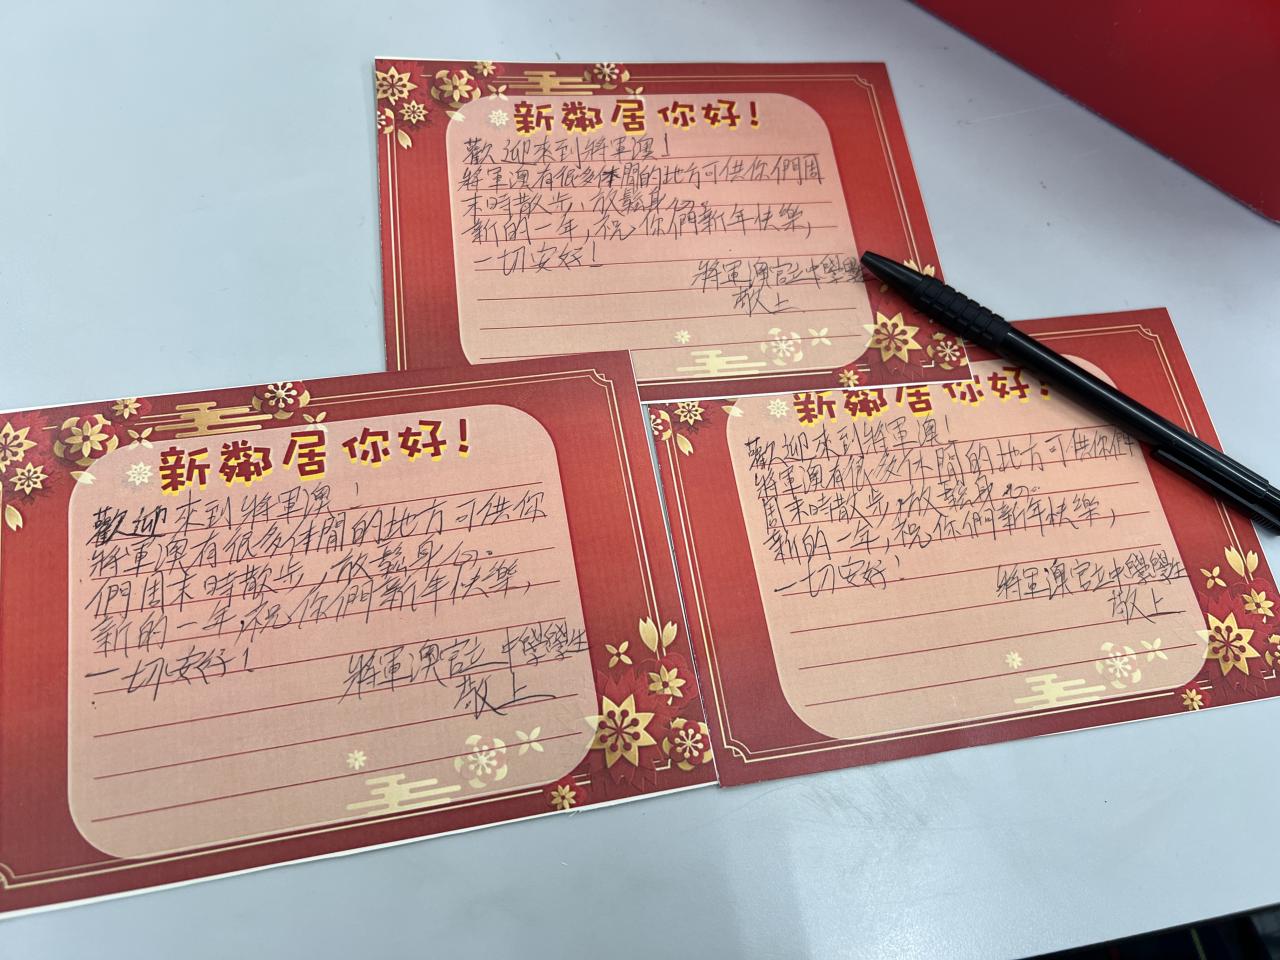 新鄰居你好！
歡迎來到將軍澳！
將軍澳有很多休閒的地方可供你們周
末時散步，放鬆身心。
新的一年，祝你們新年快樂，
一切安好！
將軍澳官立中學學生
敬上
新鄰居你好！
歡迎來到將軍澳！
將軍澳有很多休閒的地方可供你
們周末時散步，放鬆身心。
新的一年，祝你們新年快樂，
一切安好！
將軍澳官立中學學生
敬上
新鄰居你好！
歡迎來到將軍澳！
將軍澳有很多休閒的地方可供你們
周末時散步，放鬆身心。
新的一年，祝你們新年快樂，
一切安好！
將軍澳官立中學學生
敬上